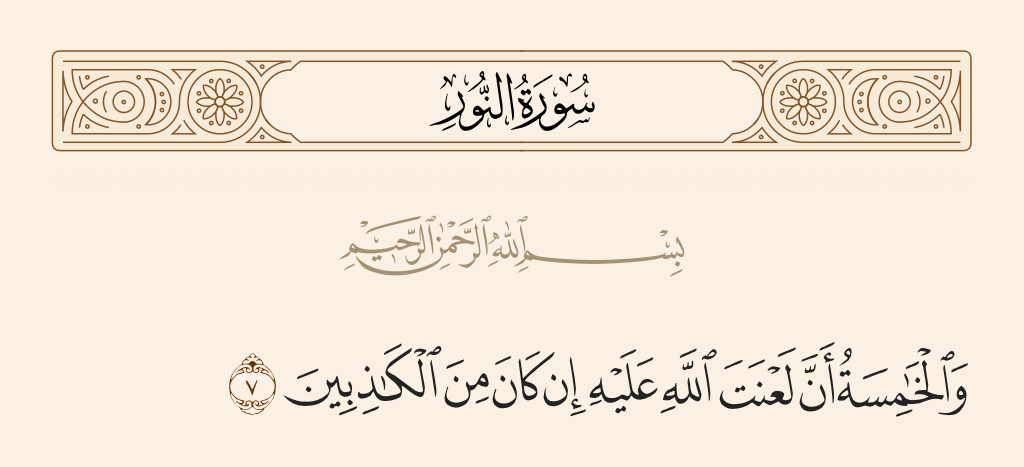 سُورَةُ النُّورِ
بِسْمِ ٱللَّهِ ٱلرَّحْمَٰنِ ٱلرَّحِيمِ
وَٱلْخَٰمِسَةُ أَنَّ لَعْنَتَ ٱللَّهِ عَلَيْهِ إِن كَانَ مِنَ ٱلْكَٰذِبِينَ ٧